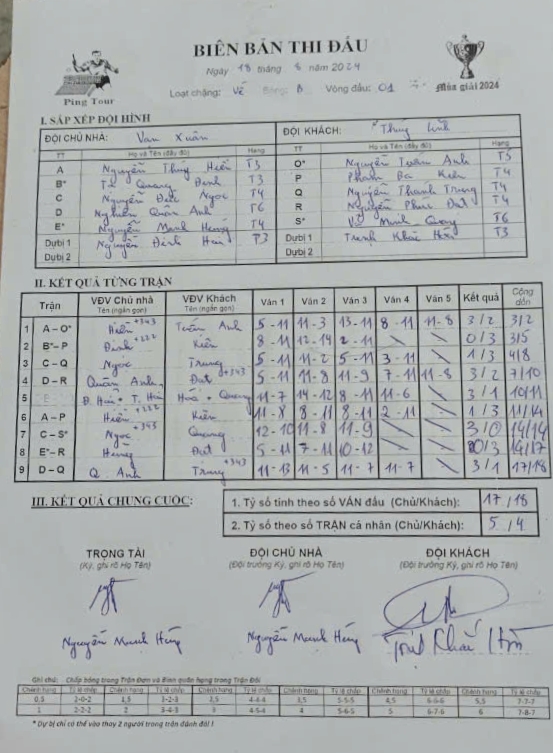 BIÊN BẢN THI ĐẤU
Ngày 18 tháng 8 năm 2024
Loạt chặng: Về Bảng: B Vòng đấu: 01
Ping Tour
Mùa giải 2024
I. SẮP XẾP ĐỘI HÌNH
ĐỘI CHỦ NHÀ: Vạn Xuân ĐỘI KHÁCH: Thùy Linh
TT Họ và Tên (đầy đủ) Hạng TT Họ và Tên (đầy đủ) Hạng
A Nguyễn Thúy Hiền T3 O* Nguyễn Tuấn Anh T5
B* Tạ Quang Định T3 P Phạm Bá Kiên T4
C Nguyễn Đức Ngọc T4 Q Nguyễn Thành Trung T4
D Quân Anh T6 R Nguyễn Phúc Đạt T4
E* Nguyễn Mạnh Hùng T4 S* Vũ Minh Quang T6
Dự bị 1 Nguyễn Đình Huy Dự bị 1 Trịnh Khắc T3
Dự bị 2 Dự bị 2
II. KẾT QUẢ TỪNG TRẬN
Trận VĐV Chủ nhà VĐV Khách Ván 1 Ván 2 Ván 3 Ván 4 Ván 5 Kết quả Cộng dồn
Tên (ngắn gọn) Tên (ngắn gọn)
1 A – O* Hiền +343 Tuấn Anh 5-11 11-3 13-11 8-11 11-8 3/2 3/2
2 B* – P Định +222 Kiên 8-11 12-14 2-11 0/3 3/5
3 C – Q Ngọc Trung 5-11 11-2 5-11 3-11 1/3 4/8
4 D – R Quân Anh +343 Đạt 5-11 11-8 11-9 7-11 11-8 3/2 7/10
5 Quang 11-7 14-12 8-11 11-6 3/1 10/11
6 A – P Hiền +222 Kiên 11-8 8-11 8-11 2-11 1/3 11/14
7 C – S* Ngọc Quang 12-10 11-8 11-9 3/0 14/14
8 E* – R Hùng Đạt 5-11 7-11 10-12 0/3 14/17
9 D – Q Q. Anh Trung +343 11-13 11-5 11-7 11-7 3/1 17/18
III. KẾT QUẢ CHUNG CUỘC:
1. Tỷ số tính theo số VÁN đấu (Chủ/Khách): 17/18
2. Tỷ số theo số TRẬN cá nhân (Chủ/Khách): 5/4
TRỌNG TÀI ĐỘI CHỦ NHÀ ĐỘI KHÁCH
(Ký, ghi rõ Họ Tên) (Đội trưởng Ký, ghi rõ Họ Tên) (Đội trưởng Ký, ghi rõ Họ Tên)
Nguyễn Mạnh Hùng Nguyễn Mạnh Hùng Trịnh Khắc
Ghi chú: Chấp bóng trong Trận Đơn và Bình quân hạng trong Trận Đôi
Chênh hạng Tỷ lệ chấp Chênh hạng Tỷ lệ chấp Chênh hạng Tỷ lệ chấp Chênh hạng Tỷ lệ chấp Chênh hạng Tỷ lệ chấp Chênh hạng Tỷ lệ chấp
0,5 2-0-2 1,5 3-2-3 2,5 4-4-4 3,5 5-5-5 4,5 6-6-6 5,5 7-7-7
1 2-2-2 2 3-4-3 3 4-5-4 4 5-6-5 5 6-7-6 6 7-8-7
* Dự bị chỉ có thể vào thay 2 người trong trận đánh đôi !